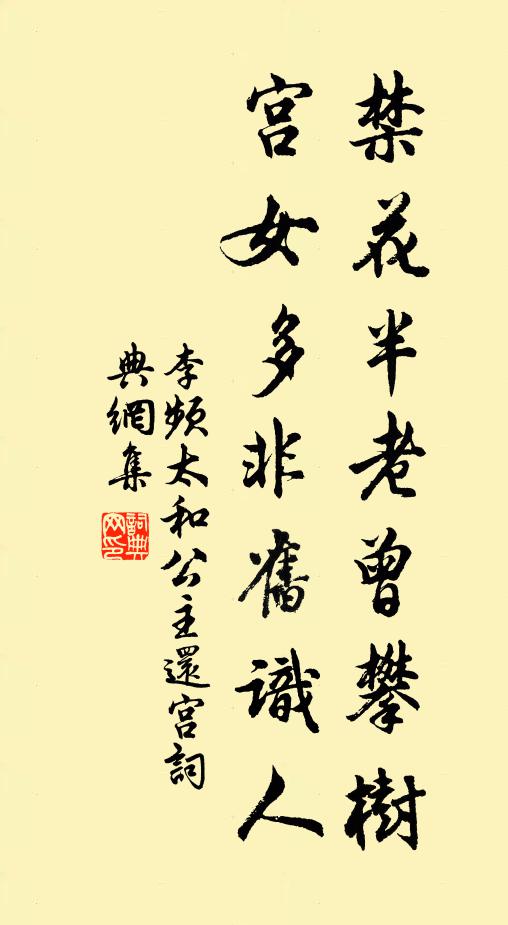 禁花半老曾攀樹
宮女多非舊識人
李頻太和公主還宮詞
典網集
詞典網印